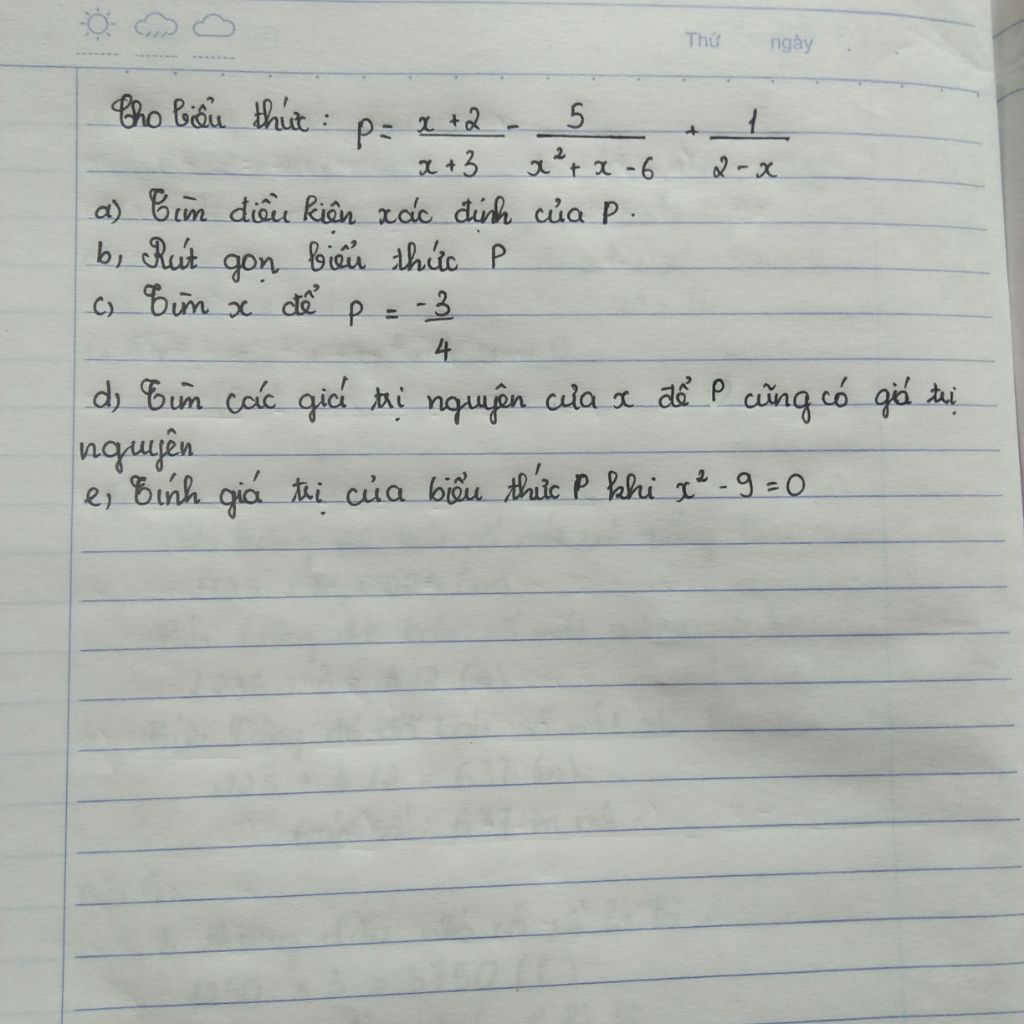 Thứ ngày
Cho biểu thức : P = \frac{x+2}{x+3} - \frac{5}{x^2+x-6} + \frac{1}{2-x}
a) Tìm điều kiện xác định của P.
b, Rút gọn biểu thức P
c, Tìm x để P = \frac{-3}{4}
d, Tìm các giá trị nguyên của x để P cũng có giá trị
nguyên
e, Tính giá trị của biểu thức P khi x² - 9 = 0